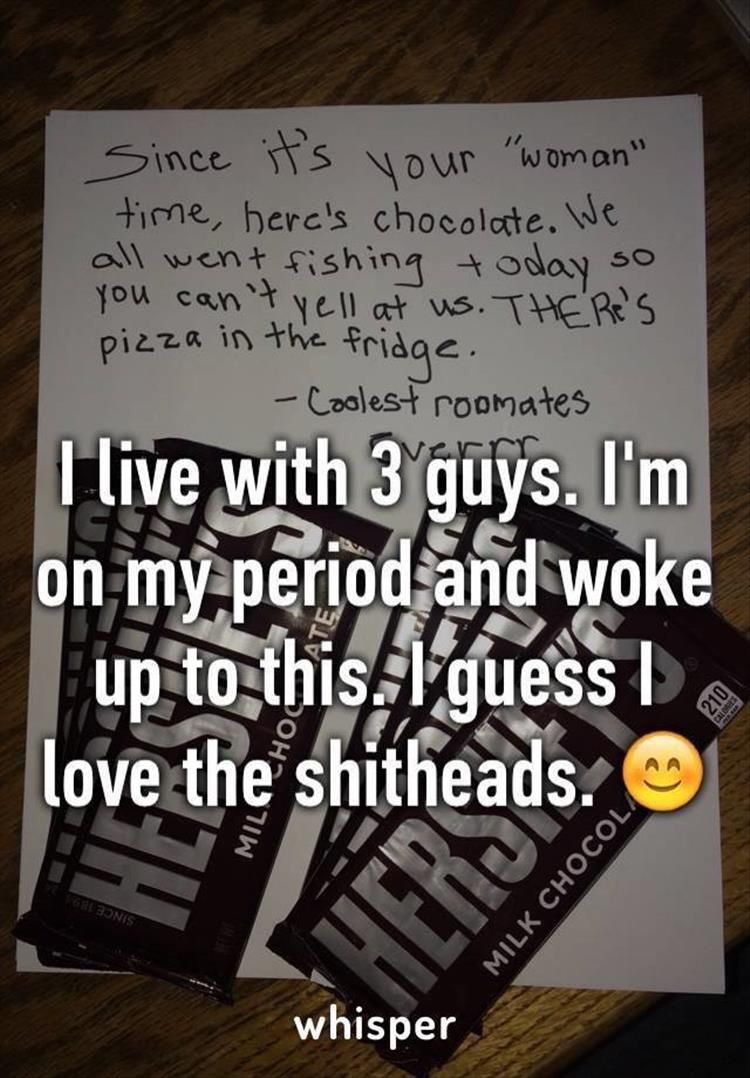 Since it's your "woman"
time, here's chocolate. We
all went fishing today so
you can't yell at us. THERe'S
pizza in the fridge.
- Coolest roomates
Everrr
I live with 3 guys. I'm
on my period and woke
up to this. I guess I
love the shitheads. 😊
HERSHEY'S
MILK CHOCOLATE
SINCE 1894
HERSHEY'S
MILK CHOCOLA
210
CALORIES
whisper